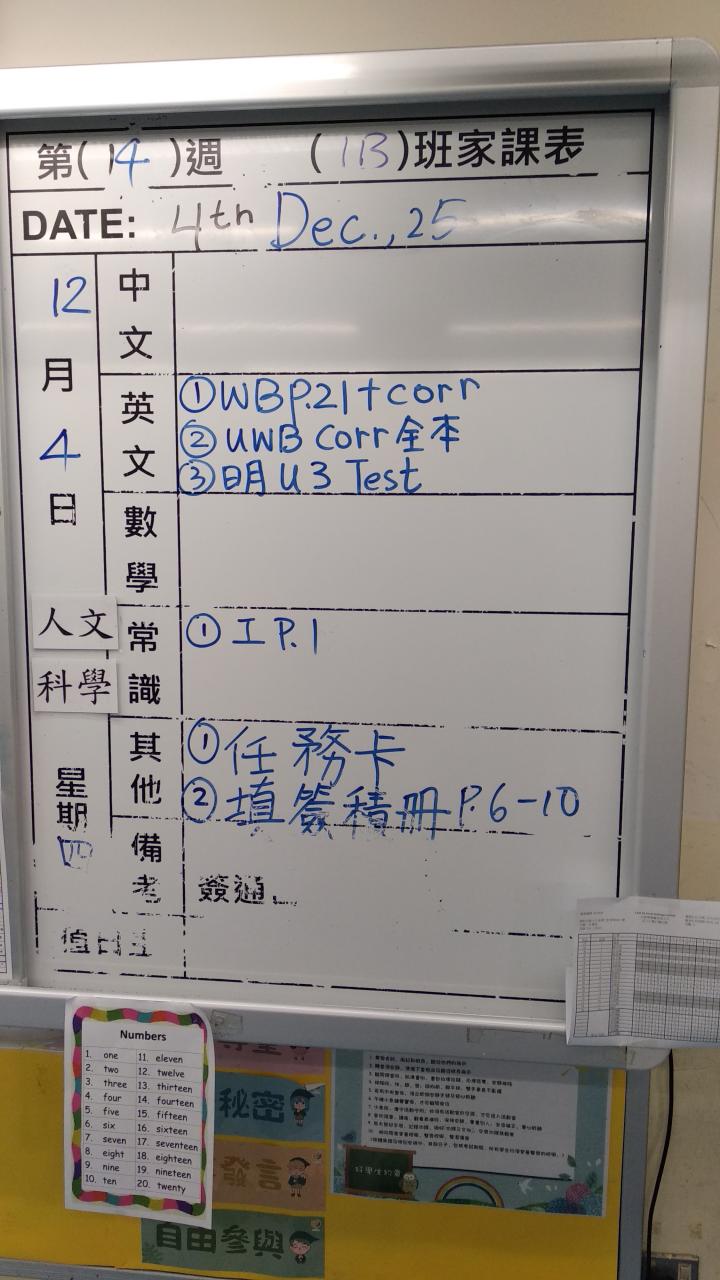 第(14)週 (1B)班家課表
DATE: 4th Dec., 25
12月4日
人文
科學
星期四
中文
英文
①WBP.21+corr
②UWB Corr全本
③明U3 Test
數學
常識
①工P.1
其他
①任務卡
②填簽積冊P.6-10
備考
簽通
值日生
Numbers
1. one 11. eleven
2. two 12. twelve
3. three 13. thirteen
4. four 14. fourteen
5. five 15. fifteen
6. six 16. sixteen
7. seven 17. seventeen
8. eight 18. eighteen
9. nine 19. nineteen
10. ten 20. twenty
秘密
發言
自由參與
好學生約章